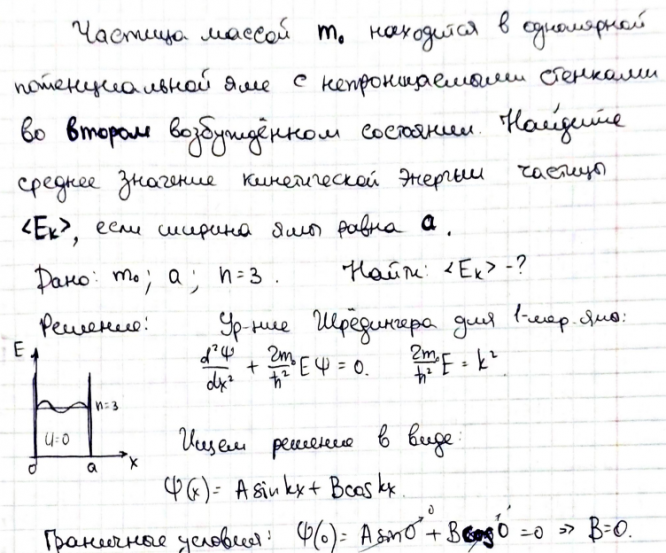 Частица массой m₀ находится в одномерной
потенциальной яме с непроницаемыми стенками
во втором возбуждённом состоянии. Найдите
среднее значение кинетической энергии частицы
<Eₖ>, если ширина ямы равна a.
Дано: m₀; a; n=3. Найти: <Eₖ>-?
Решение: Ур-ние Шрёдингера для 1-мер. ямы:
d²Ψ/dx² + 2m₀/ħ² EΨ = 0. 2m₀/ħ² E = k²
E
n=3
U=0
0 a x
Ищем решение в виде:
Ψ(x) = A sin kx + B cos kx.
Граничные условия: Ψ(0) = A sin 0 + B cos 0 = 0 => B=0.